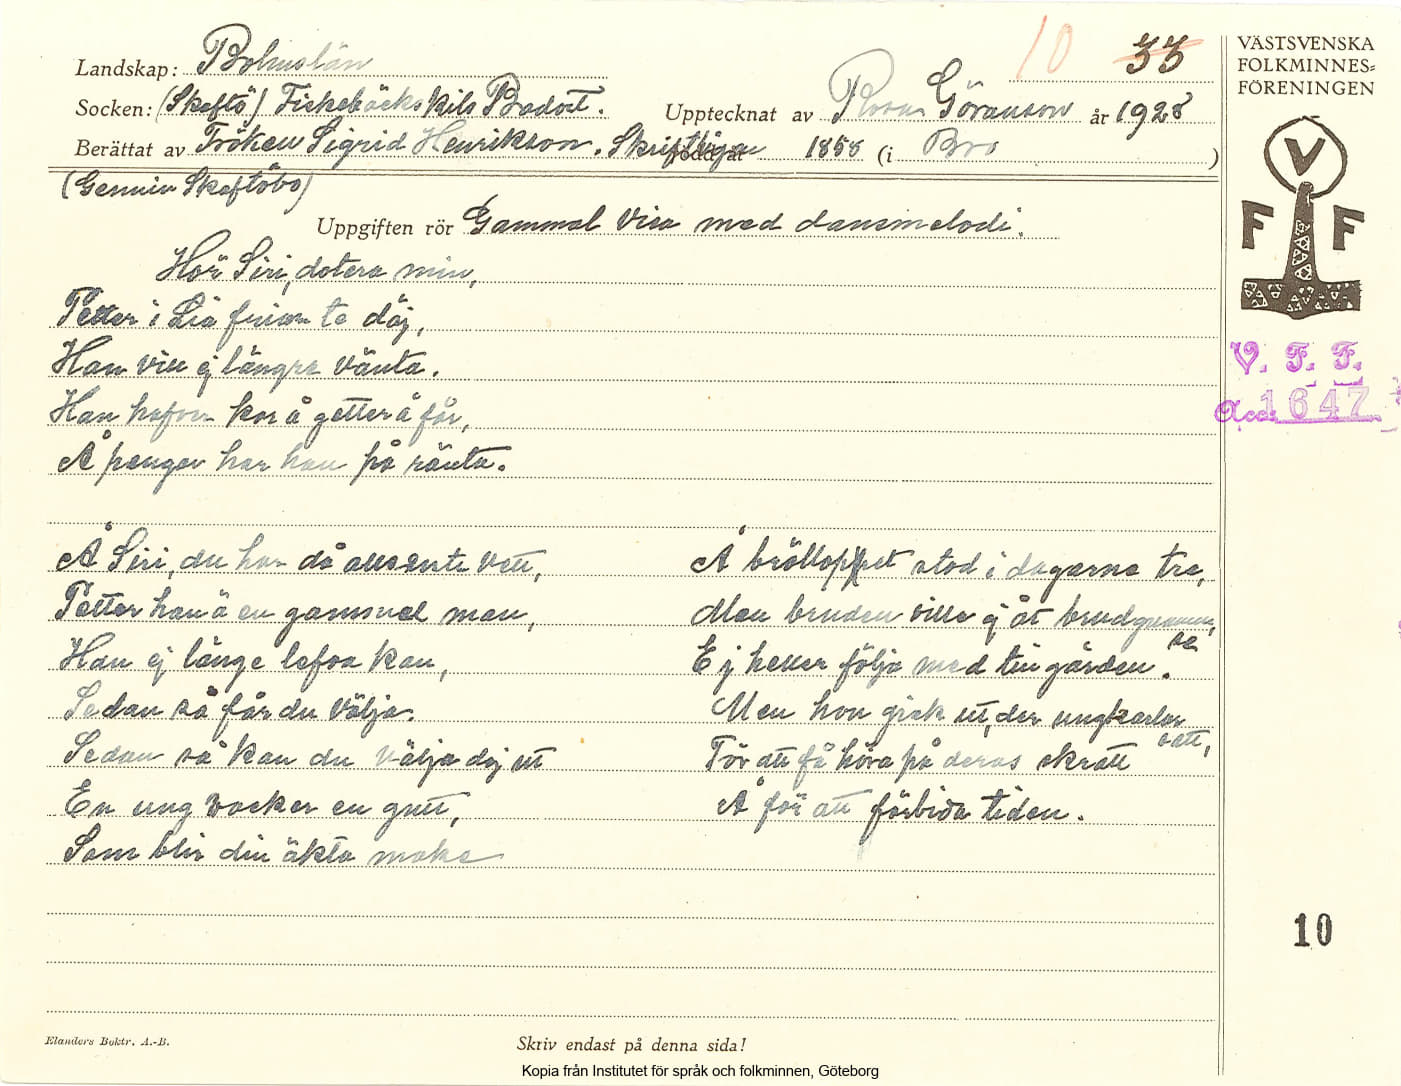 10 33
VÄSTSVENSKA
FOLKMINNES=
FÖRENINGEN
Landskap: Bohuslän
Socken: (Skaftö) Fiskebäckskils Badort.
Upptecknat av Göranson år 1928
Berättat av Fröken Sigrid Henrikson. Skriftliga född år 1858 (i Bro )
(Genuin Skaftöbo)
Uppgiften rör Gammal visa med dansmelodi.
V
F F
Hör Siri, dotera min,
Petter i Lia friar te däj,
Han vill ej längre vänta.
Han hafver kor å getter å får,
Å pengar har han på ränta.
V. F. F.
Acc. 1647
Å Siri, du har då allsente vett,
Petter han ä en gammel man,
Han ej länge lefva kan,
Sedan så får du välja.
Sedan så kan du välja dej ut
En ung vacker en gutt,
Som blir din äkta make
Å bröllopet stod i dagarna tre,
Men bruden ville ej åt brudgummen se
Ej heller följa med till gården.
Men hon gick ut, der ungkarlar satt,
För att få höra på deras skratt
Å för att förbida tiden.
10
Elanders Boktr. A.-B.
Skriv endast på denna sida!
Kopia från Institutet för språk och folkminnen, Göteborg